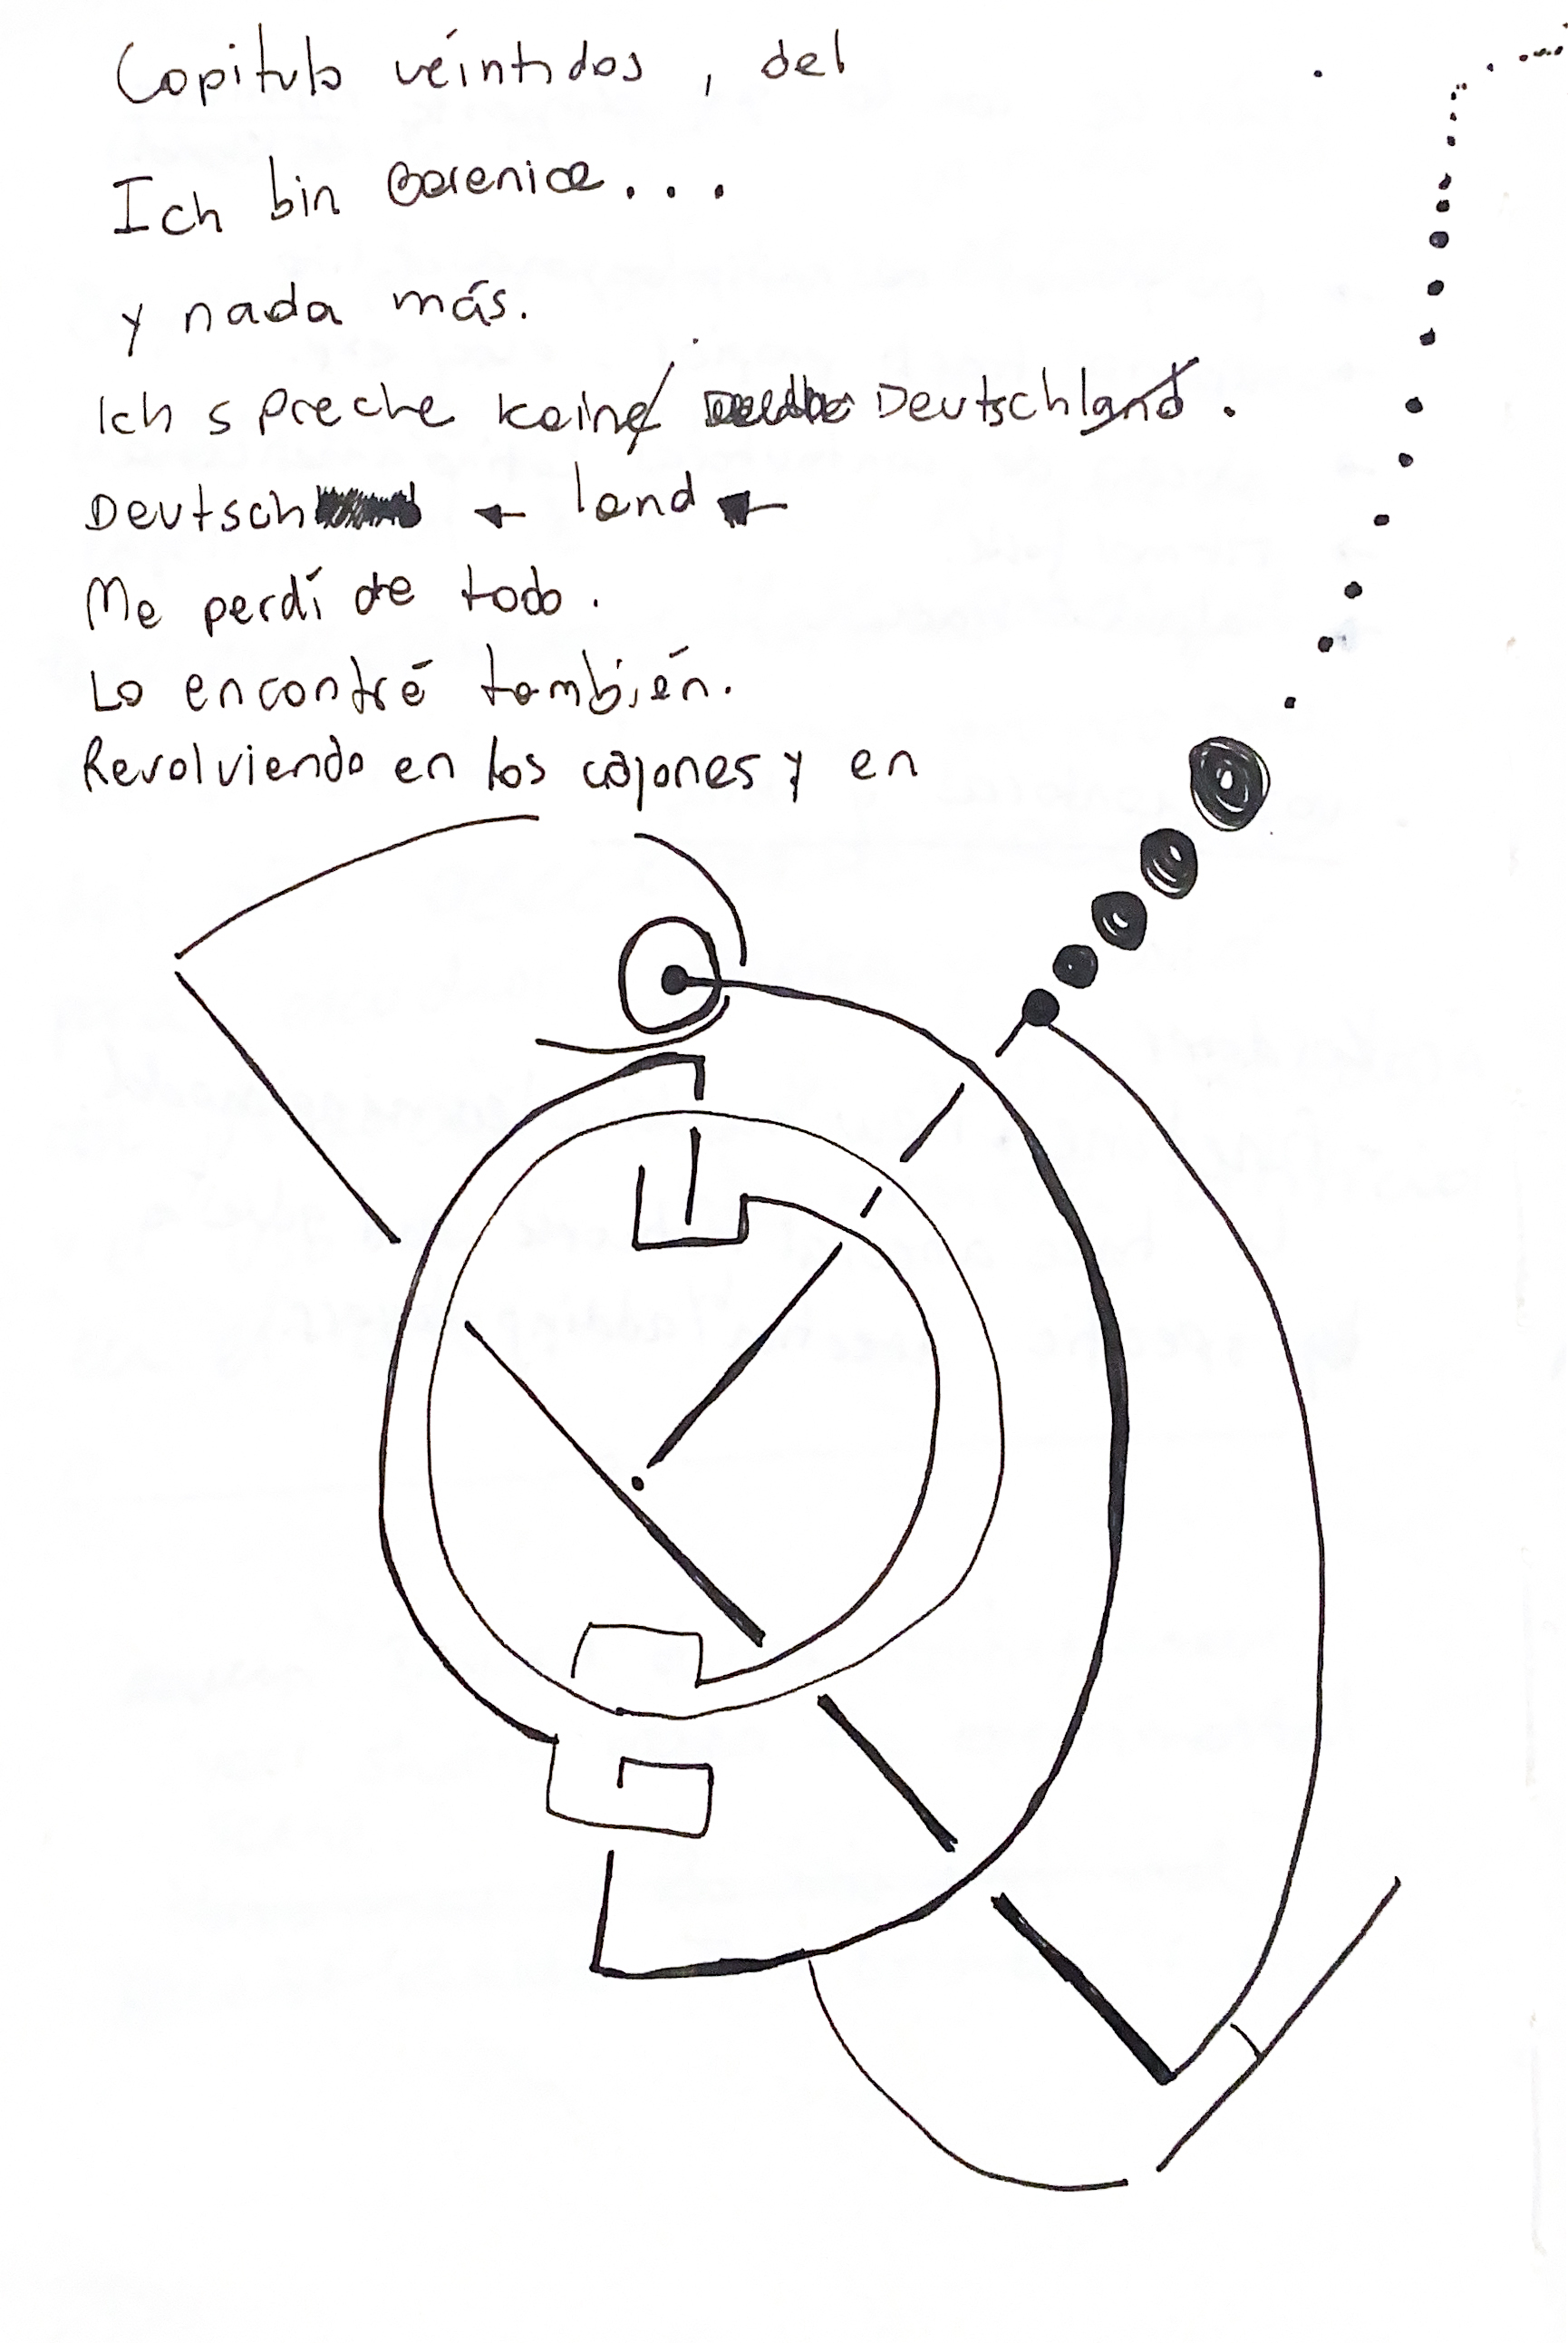 Capitulo véintidos, del
Ich bin Berenice...
y nada más.
Ich spreche keine Deutschland.
Deutsch ← land ←
Me perdí de todo.
Lo encontré también.
Revolviendo en los cajones y en